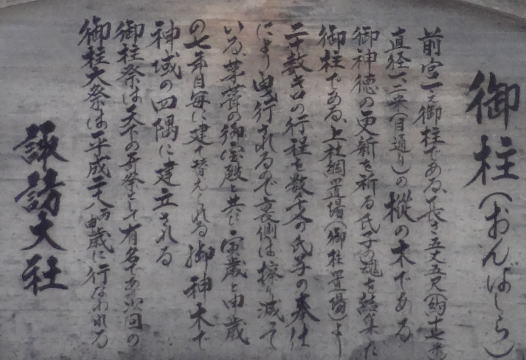 御柱(おんばしら)
前宮一之御柱である長さ五丈五尺(約十七米)
直径一、二米(目通り)の樅の木である
御神徳の更新を祈る氏子の魂を結集した
御柱である上社綱置場(御柱置場)より
二十数キロの行程を数千人の氏子の奉仕
により曳行されるので裏側は擦り減って
いる茅葺の御宝殿と共に寅歳と申歳
の七年目毎に建て替えられる御神木で
神域の四隅に建立される
御柱祭は天下の奇祭として有名であり次回の
御柱大祭は平成二八丙申歳に行なわれる
諏訪大社